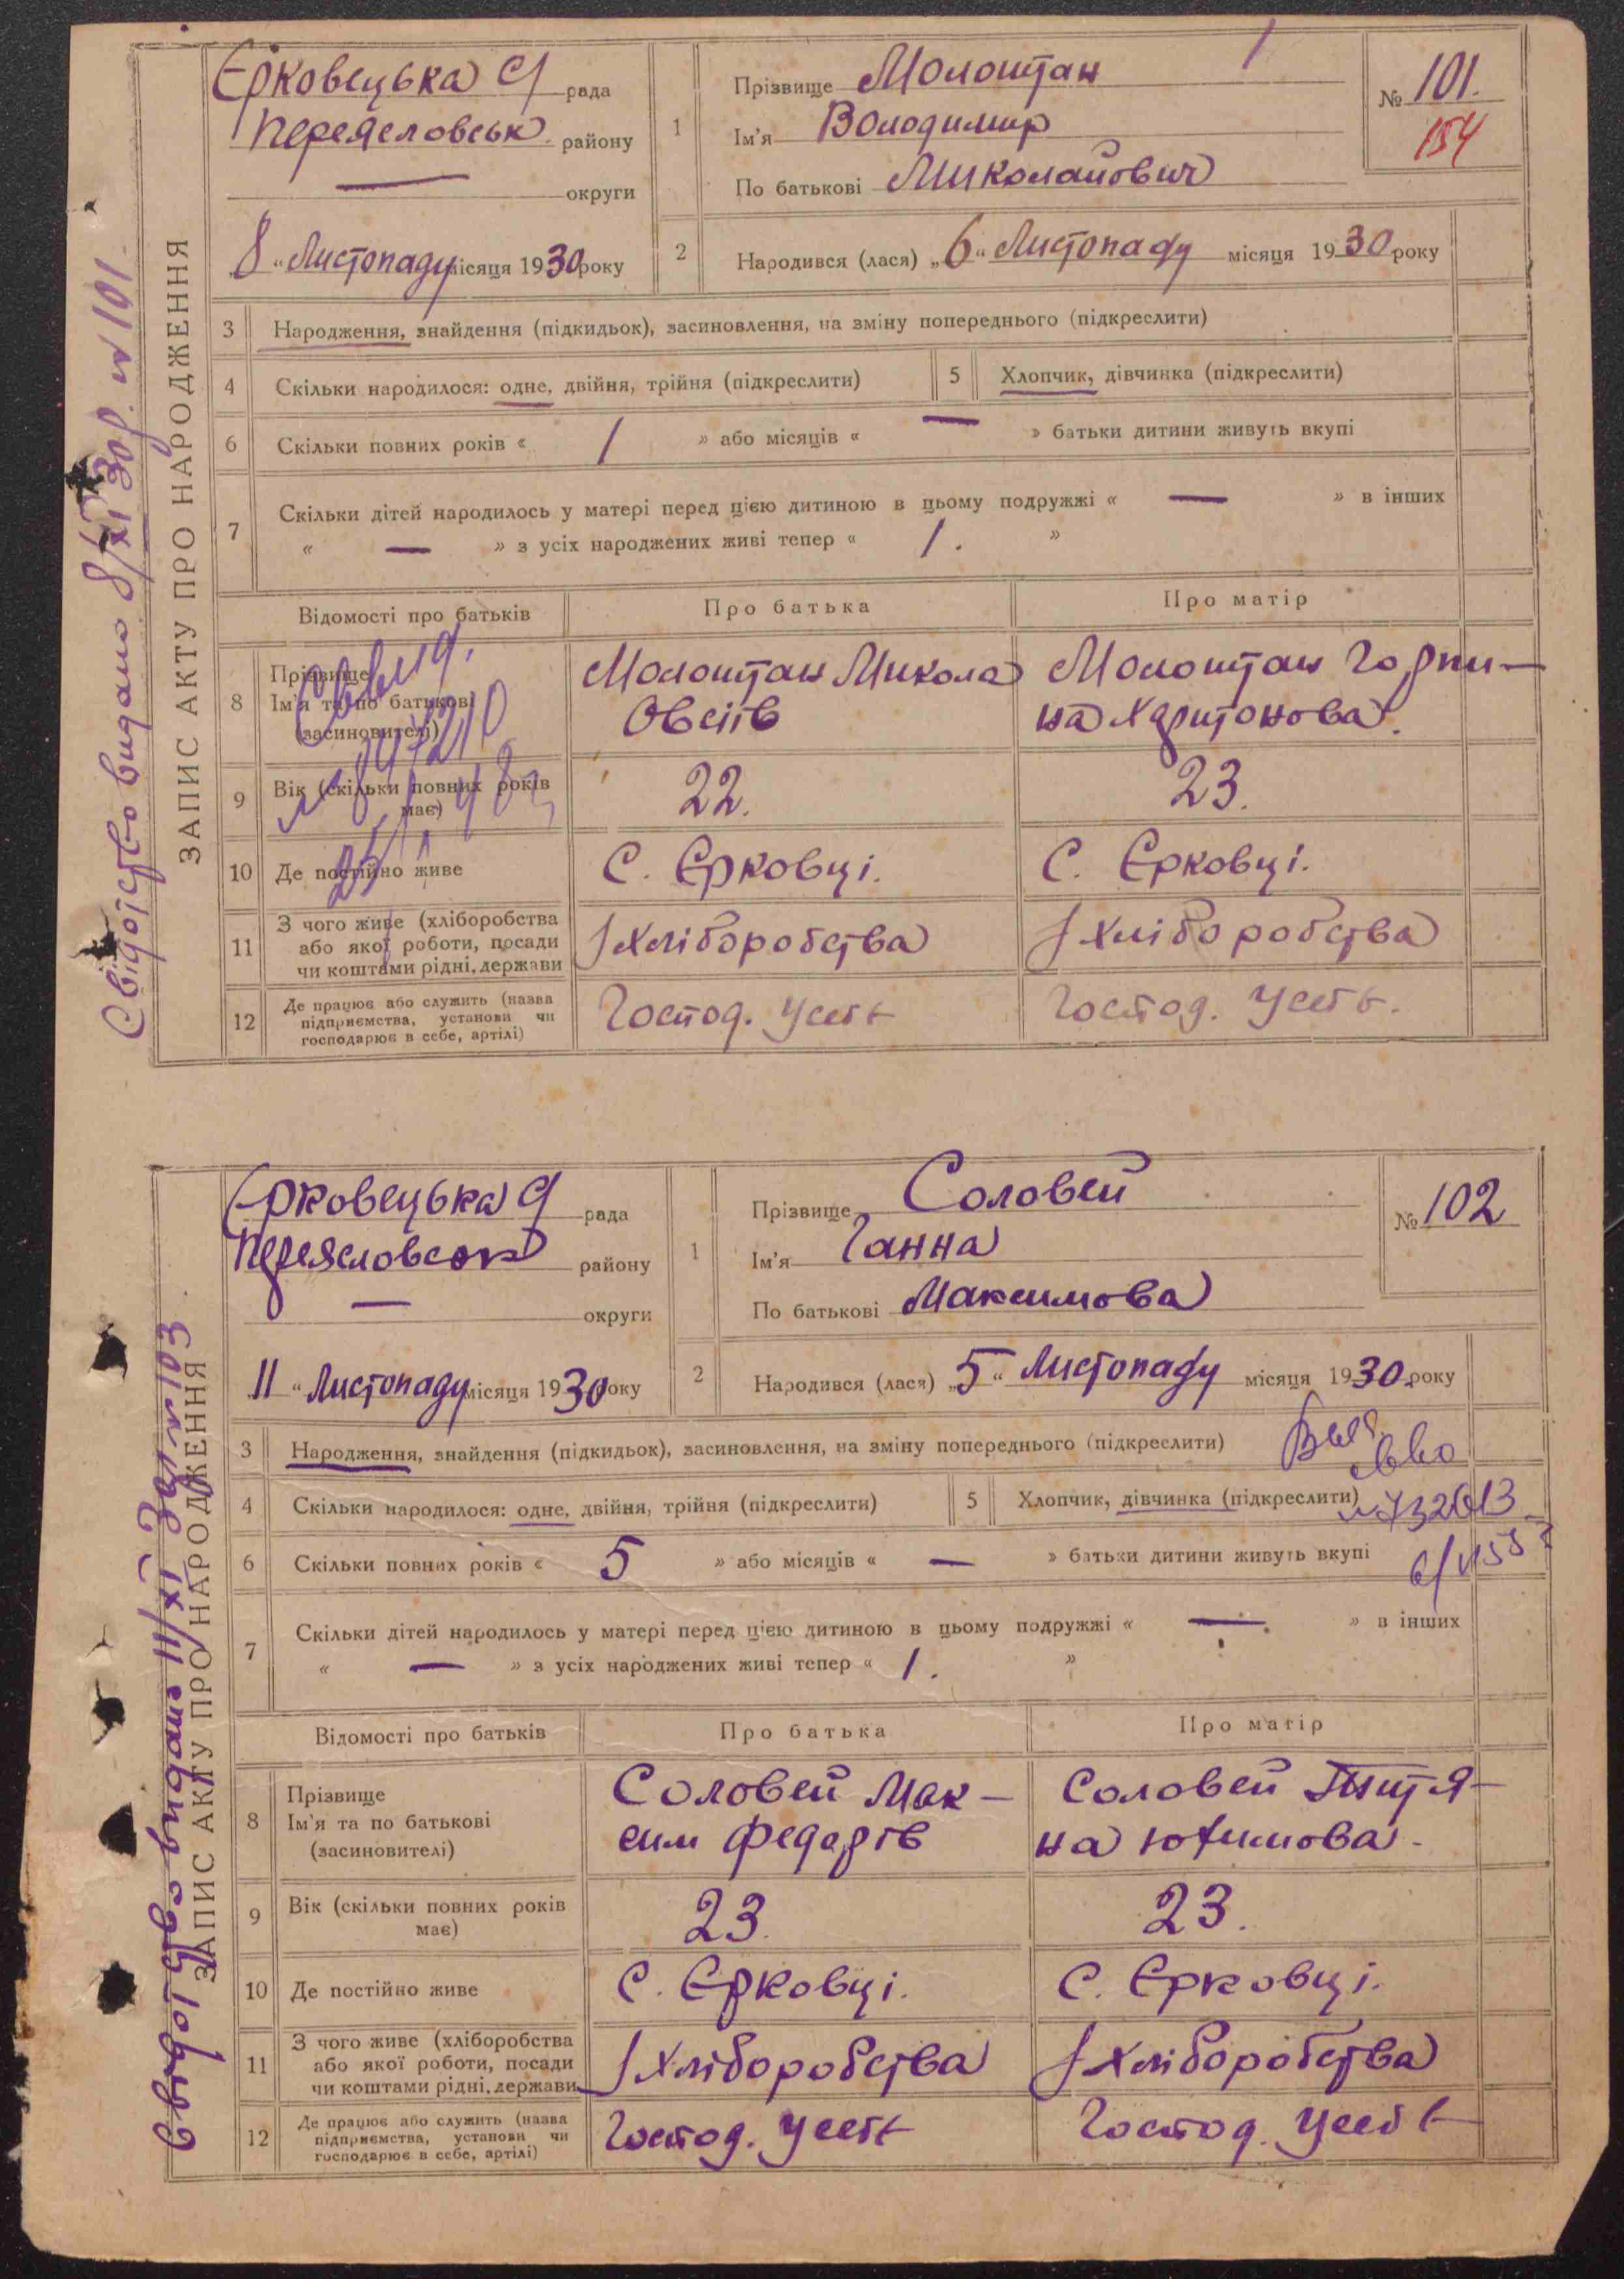 Єрковецька С/ рада
Переяславськ. району
— округи
8 " Листопаду місяця 1930 року
1 Прізвище Молоштан
Ім'я Володимир
По батькові Миколайович
№ 101.
154
2 Народився (лася) „6" Листопаду місяця 1930 року
3 Народження, знайдення (підкидьок), засиновлення, на зміну попереднього (підкреслити)
4 Скільки народилося: одне, двійня, трійня (підкреслити) 5 Хлопчик, дівчинка (підкреслити)
6 Скільки повних років « 1 » або місяців « — » батьки дитини живуть вкупі
7 Скільки дітей народилось у матері перед цією дитиною в цьому подружжі « — » в інших
« — » з усіх народжених живі тепер « 1. »
Відомості про батьків Про батька Про матір
8 Прізвище
Ім'я та по батькові
(засновителі)
Молоштан Микола
Овсіів
Молоштан Горпи-
на Харитонова.
9 Вік (скільки повних років
має)
22. 23.
10 Де постійно живе С. Єрковці. С. Єрковці.
11 З чого живе (хліборобства
або якої роботи, посади
чи коштами рідні, держави
Хліборобства Хліборобства
12 Де працює або служить (назва
підприємства, установи чи
господарює в себе, артілі)
Господ. Господ.
ЗАПИС АКТУ ПРО НАРОДЖЕННЯ
Свідоцтво видано 8/XI 30р. № 101.
Єрковецька С/ рада
Переясловськ району
— округи
11 " Листопаду місяця 1930 року
1 Прізвище Соловей
Ім'я Ганна
По батькові Максимова
№ 102
2 Народився (лася) „5" Листопаду місяця 1930 року
3 Народження, знайдення (підкидьок), засиновлення, на зміну попереднього (підкреслити)
4 Скільки народилося: одне, двійня, трійня (підкреслити) 5 Хлопчик, дівчинка (підкреслити)
6 Скільки повних років « 5 » або місяців « — » батьки дитини живуть вкупі
7 Скільки дітей народилось у матері перед цією дитиною в цьому подружжі « — » в інших
« — » з усіх народжених живі тепер « 1. »
Відомості про батьків Про батька Про матір
8 Прізвище
Ім'я та по батькові
(засиновителі)
Соловей Мак-
сим Федорів
Соловей
на Юхимова.
9 Вік (скільки повних років
має)
23. 23.
10 Де постійно живе С. Єрковці. С. Єрковці.
11 З чого живе (хліборобства
або якої роботи, посади
чи коштами рідні, держави
Хліборобства Хліборобства
12 Де працює або служить (назва
підприємства, установи чи
господарює в себе, артілі)
Господ. Господ.
ЗАПИС АКТУ ПРО НАРОДЖЕННЯ
Свідотцтво видано 11/XI 30р № 103